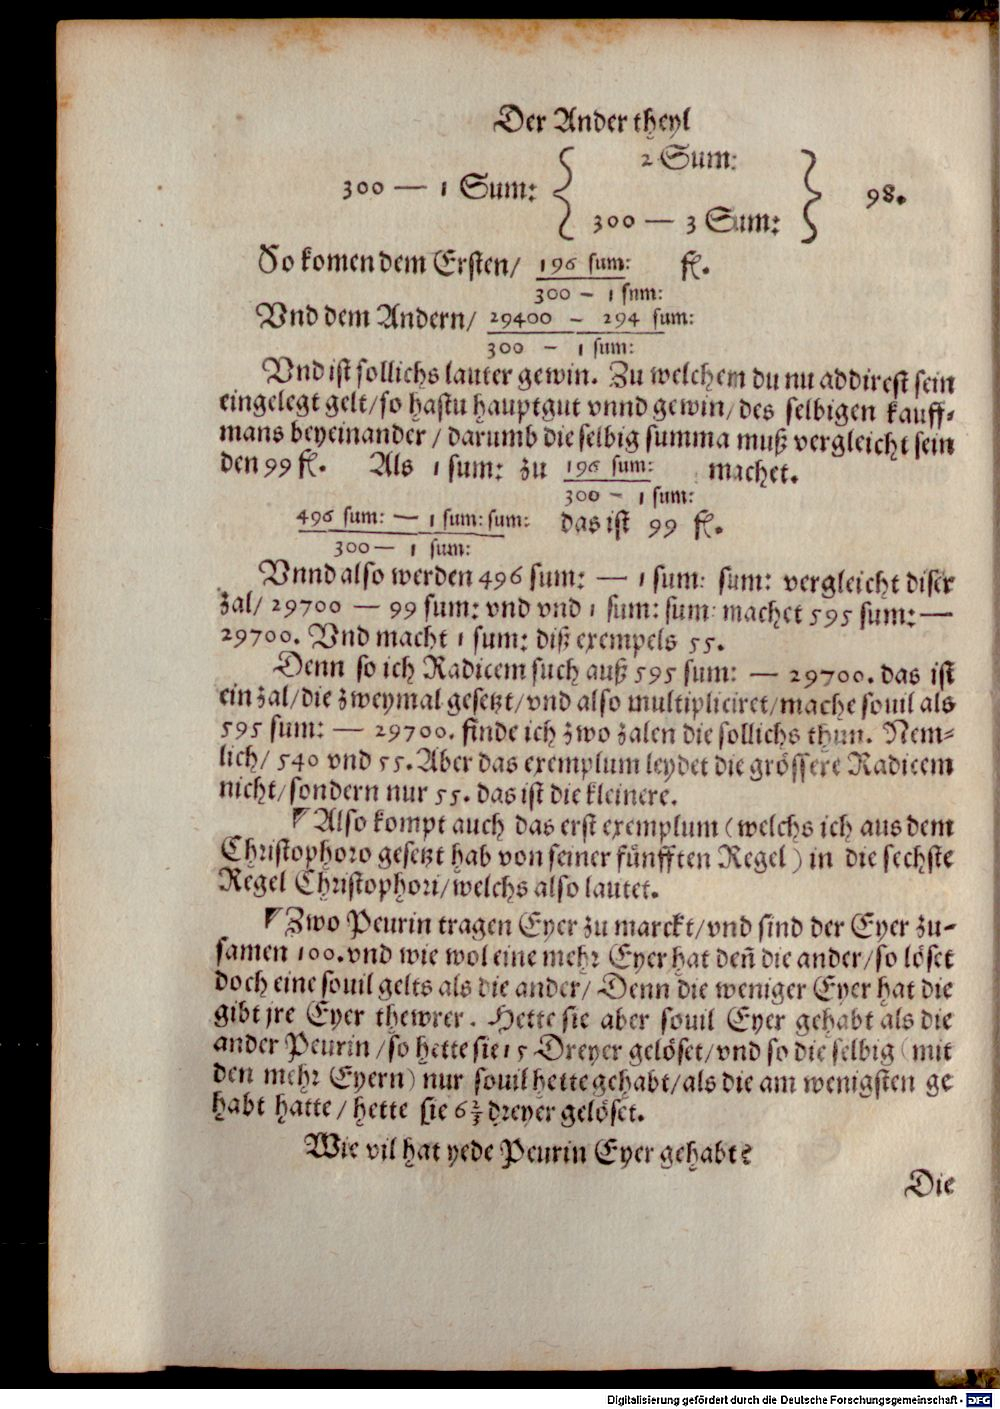 Der Ander theyl
2 Sum:
300 — 1 Sum: { } 98.
300 — 3 Sum:
So komen dem Ersten/ 196 sum: fl.
300 – 1 sum:
Vnd dem Andern/ 29400 – 294 sum:
300 – 1 sum:
Vnd ist sollichs lauter gewin. Zu welchem du nu addirest sein
eingelegt gelt/so hastu hauptgut vnnd gewin/des selbigen kauff-
mans beyeinander/darumb die selbig summa muß vergleicht sein
den 99 fl. Als 1 sum: zu 196 sum: machet.
300 – 1 sum:
496 sum: — 1 sum: sum: das ist 99 fl.
300 — 1 sum:
Vnnd also werden 496 sum: — 1 sum: sum: vergleicht diser
zal/ 29700 — 99 sum: vnd vnd 1 sum: sum: machet 595 sum: —
29700. Vnd macht 1 sum: diß exempels 55.
Denn so ich Radicem such auß 595 sum: — 29700. das ist
ein zal/die zweymal gesetzt/vnd also multipliciret/mache souil als
595 sum: — 29700. finde ich zwo zalen die sollichs thun. Nem-
lich/ 540 vnd 55. Aber das exemplum leydet die grössere Radicem
nicht/sondern nur 55. das ist die kleinere.
Also kompt auch das erst exemplum (welchs ich aus dem
Christophoro gesetzt hab von seiner fünfften Regel) in die sechste
Regel Christophori/welchs also lautet.
Zwo Peurin tragen Eyer zu marckt/vnd sind der Eyer zu-
samen 100. vnd wie wol eine mehr Eyer hat deñ die ander/so löset
doch eine souil gelts als die ander/ Denn die weniger Eyer hat die
gibt jre Eyer thewrer. Hette sie aber souil Eyer gehabt als die
ander Peurin/so hette sie 15 Dreyer gelöset/vnd so die selbig (mit
den mehr Eyern) nur souil hette gehabt/als die am wenigsten ge
habt hatte/ hette sie 6 2/3 dreyer gelöset.
Wie vil hat yede Peurin Eyer gehabt?
Die
Digitalisierung gefördert durch die Deutsche Forschungsgemeinschaft - DFG